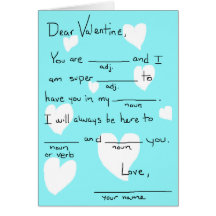 Dear Valentine,
You are ________ and I
adj.
am super ________ to
adj.
have you in my ________.
noun
I will always be here to
________ and ________ you.
noun or verb noun
Love,
________
your name